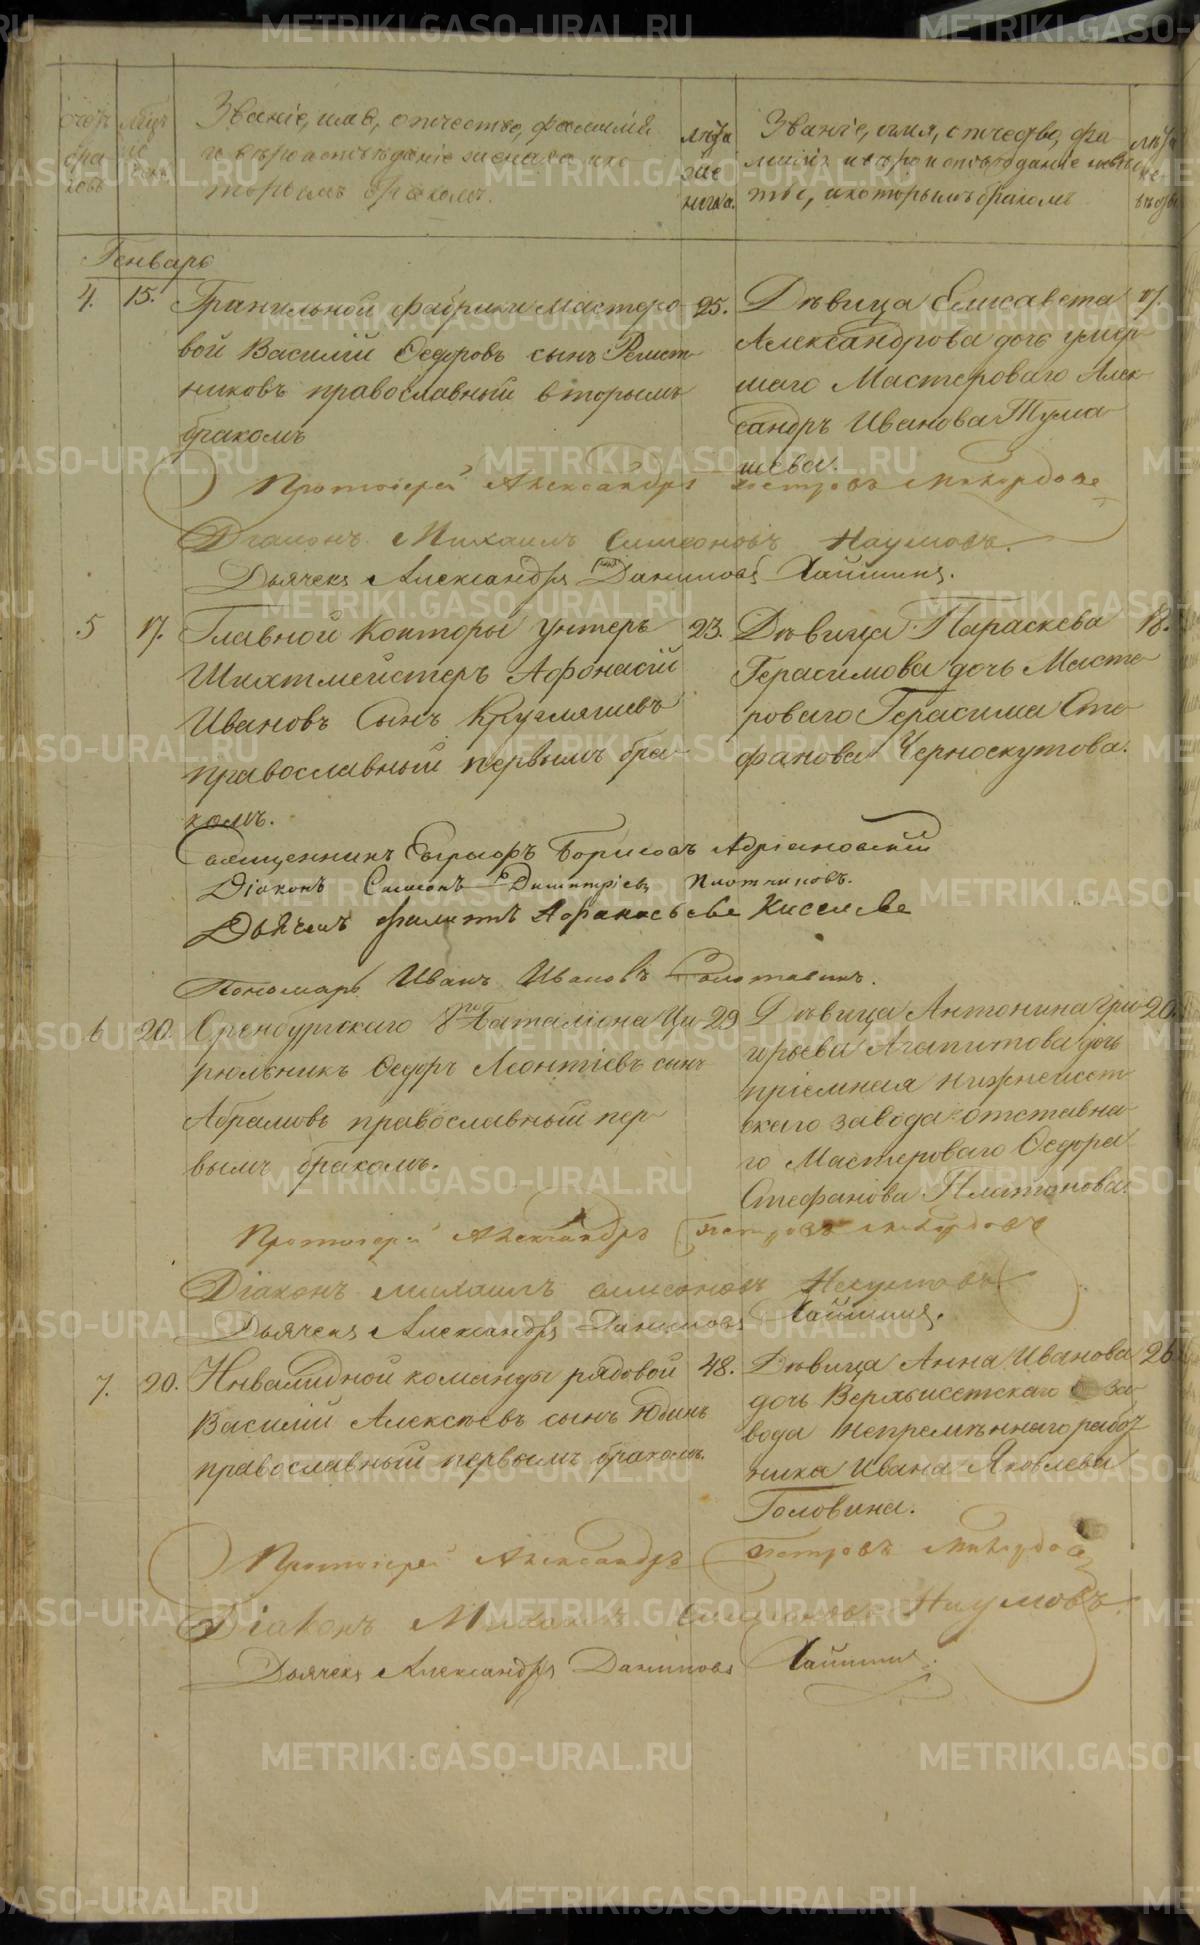 Званіе, имя, отчество, фамилія
и вѣроисповѣданіе жениха и ко
торымъ бракомъ.
лѣта
же
ниха.
Званіе, имя, отчество, фа
милія и вѣроисповѣданіе невѣ
сты, и которымъ бракомъ
Генварь
4. 15. Гранильной фабрики Мастеро
вой Василій Ѳедоровъ сынъ Решет
никовъ православный вторымъ
бракомъ
25.
Дѣвица Елисавета
Александрова дочь умер
шаго Мастероваго Алек
сандръ Иванова Тума
шева.
17.
Протоіерей Александръ Петровъ
Діаконъ Михаилъ Симеоновъ Наумовъ.
Дьячекъ Александръ Даниловъ
5 17. Главной Конторы Унтеръ
Шихтмейстеръ Афонасій
Ивановъ Сынъ Кругляшевъ
православный первымъ бра
комъ.
23.
Дѣвица Параскева
Герасимова дочь Масте
роваго Герасима Сте
фанова Черноскутова.
18.
Священникъ Григоръ Борисовъ Адріановскій
Діаконъ Симеонъ Димитріевъ Плотниковъ.
Дьячекъ Филиппъ Афанасьевъ Киселевъ
Пономарь Иванъ Ивановъ
6 20. Оренбургскаго 8го Баталіона Ци
рюльникъ Ѳедоръ Леонтіевъ сынъ
Абрамовъ православный пер
вымъ бракомъ.
29
Дѣвица Антонина Гри
горьева Агапитова дочь
пріемная Нижнеисет
скаго завода отставна
го Мастероваго Ѳедора
Стефанова Платонова.
20.
Протоіерей Александръ Петровъ
Діаконъ Михаилъ Симеоновъ Наумовъ
Дьячекъ Александръ Даниловъ
7. 20. Инвалидной команды рядовой
Василій Алексѣевъ сынъ Юдинъ
православный первымъ бракомъ.
48.
Дѣвица Анна Иванова
дочь Верхъисетскаго за
вода непремѣннаго работ
ника Ивана Яковлева
Головина.
26
Протоіерей Александръ Петровъ
Діаконъ Михаилъ Симеоновъ Наумовъ
Дьячекъ Александръ Даниловъ
METRIKI.GASO-URAL.RU